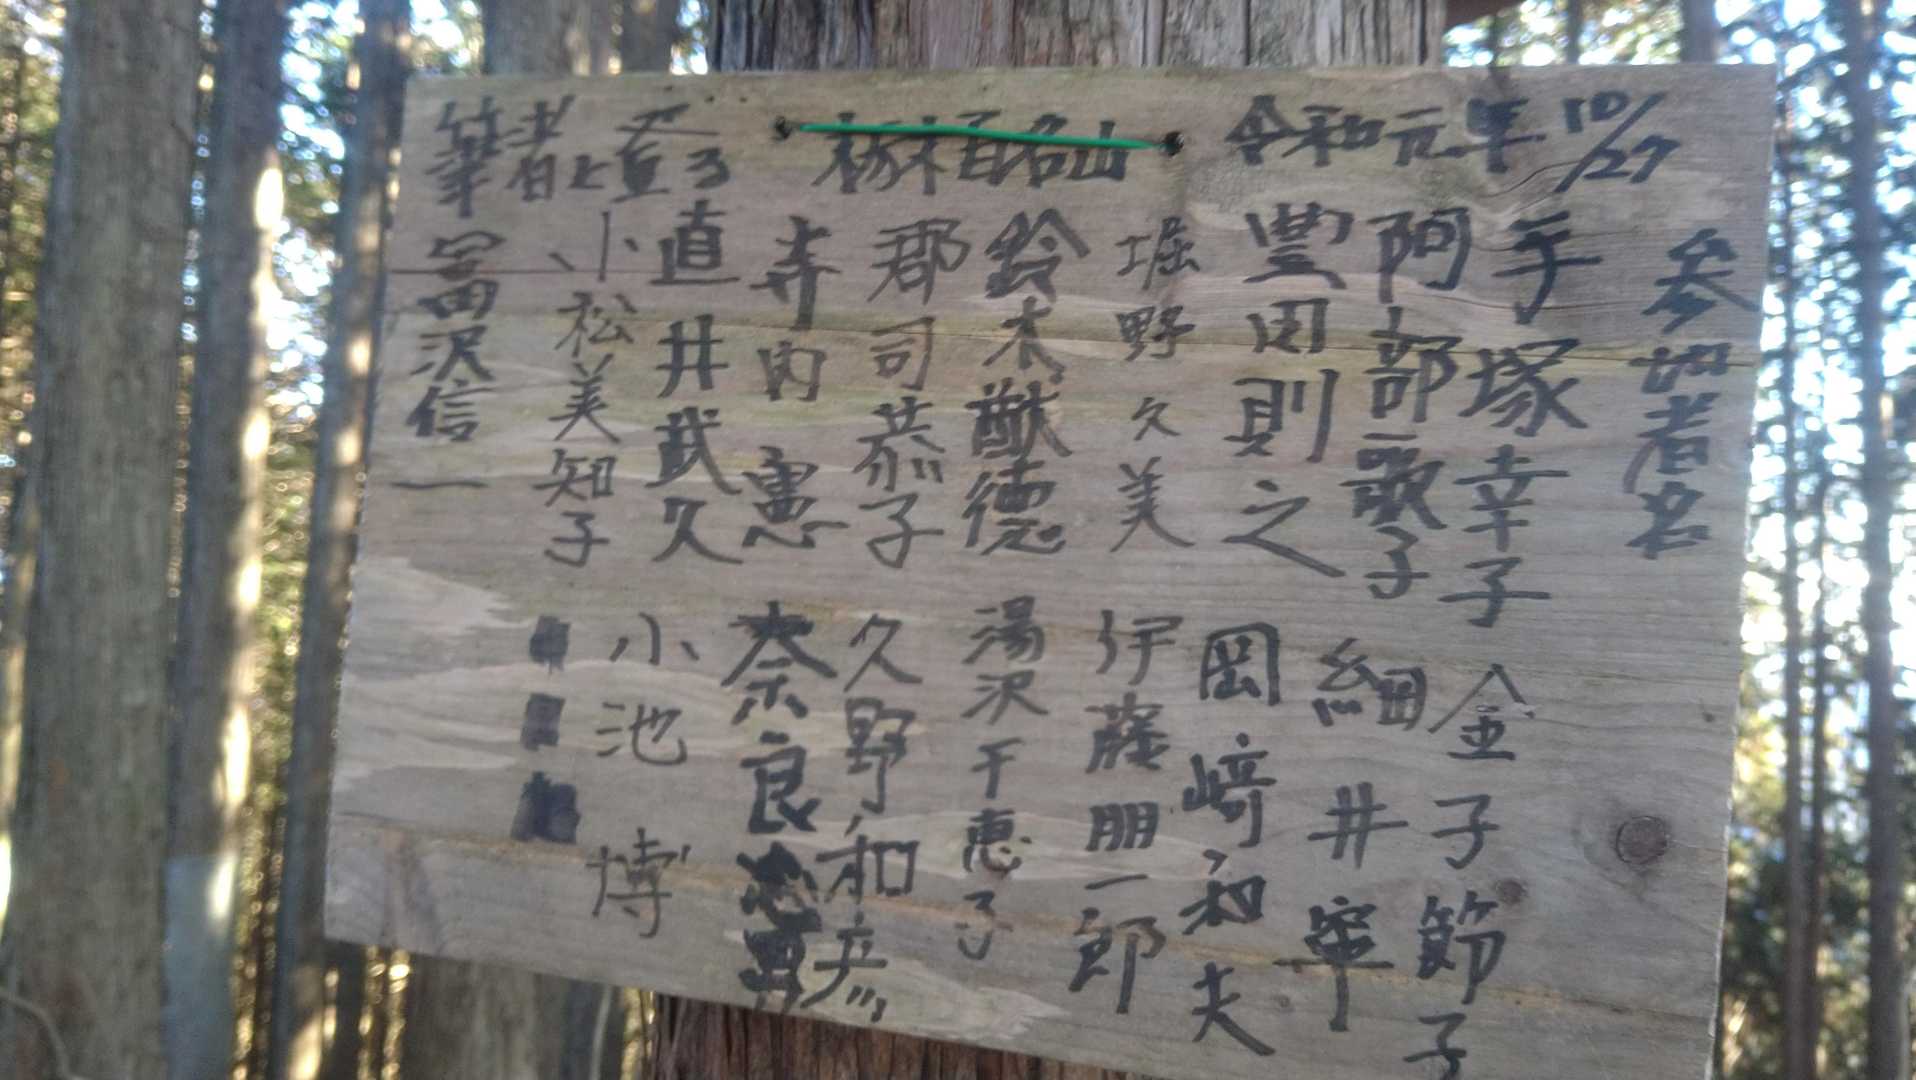 筆者と登る 栃木百名山 令和元年10/27
参加者名
手塚幸子
阿部歌子
豊田則之
堀野久美
鈴木猷徳
郡司恭子
寺内憲
直井武久
小松美知子
冨田沢信一
金子節子
細井寧
岡﨑和夫
伊藤朋一郎
湯沢千恵子
久野和彦
奈良
小池博